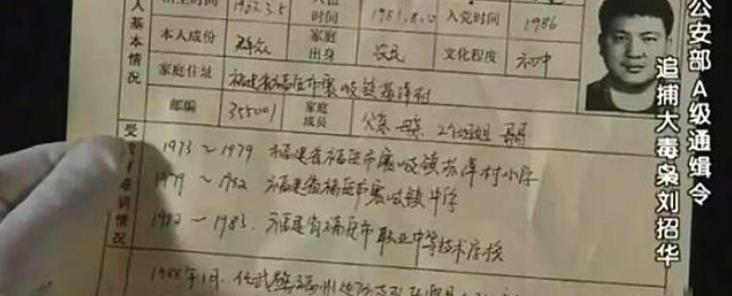 出生时间 1962.3.5 时间 1981.8.10 入党时间 1986
人基本情况
本人成份 群众 家庭出身 农民 文化程度 初中
家庭住址 福建省福安市赛岐镇苏洋村
邮编 355001 家庭成员 父亲 母亲 2个姐姐 哥哥
1973～1979 福建省福安市赛岐镇苏洋村小学
1979～1982 福建省福安市赛岐镇中学
1982～1983. 福建省福安市职业中等技术学校
情况
公安部A级通缉令
追捕大毒枭刘招华